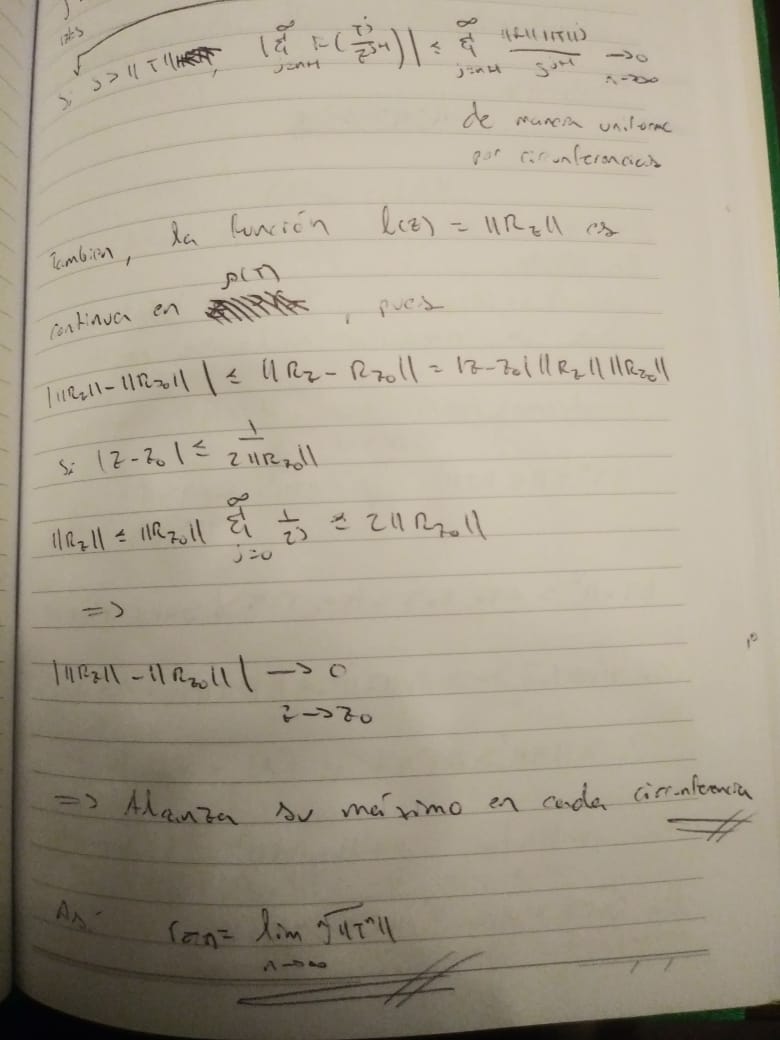 Si s > ||T||, |∑_{j=n+1}^∞ F(T^j/z^{j+1})| ≤ ∑_{j=n+1}^∞ ||F|| ||T||^j / s^{j+1} → 0
n→∞
de manera uniforme
por circunferencias
También, la función l(z) = ||R_z|| es
ρ(T)
continua en , pues
| ||R_z|| - ||R_{z_0}|| | ≤ ||R_z - R_{z_0}|| = |z-z_0| ||R_z|| ||R_{z_0}||
Si |z-z_0| ≤ 1/(2||R_{z_0}||)
||R_z|| ≤ ||R_{z_0}|| ∑_{j=0}^∞ 1/2^j ≤ 2||R_{z_0}||
=>
| ||R_z|| - ||R_{z_0}|| | → 0
z→z_0
=> Alcanza su máximo en cada circunferencia
Así lim ⁿ√||T^n||
n→∞